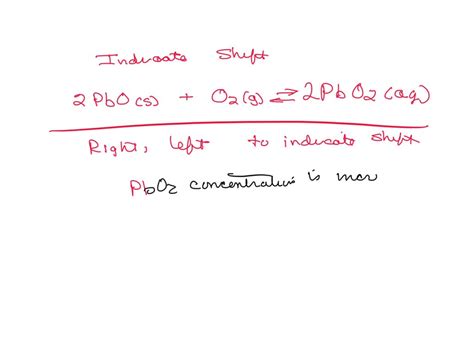 Indicate Shift
2 PbO(s) + O2(g) ⇌ 2PbO2(aq)
Right, left to indicate shift
PbO2 concentration is incr